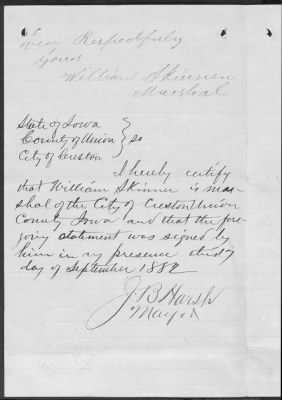 Very Respectfully
Yours
William Skinner
Marshal
State of Iowa
County of Union } ss
City of Creston
I hereby certify
that William Skinner is mar-
shal of the City of Creston Union
County Iowa and that the for-
going statement was signed by
him in my presence this 7
day of September 1882
J B Harsh
Mayor